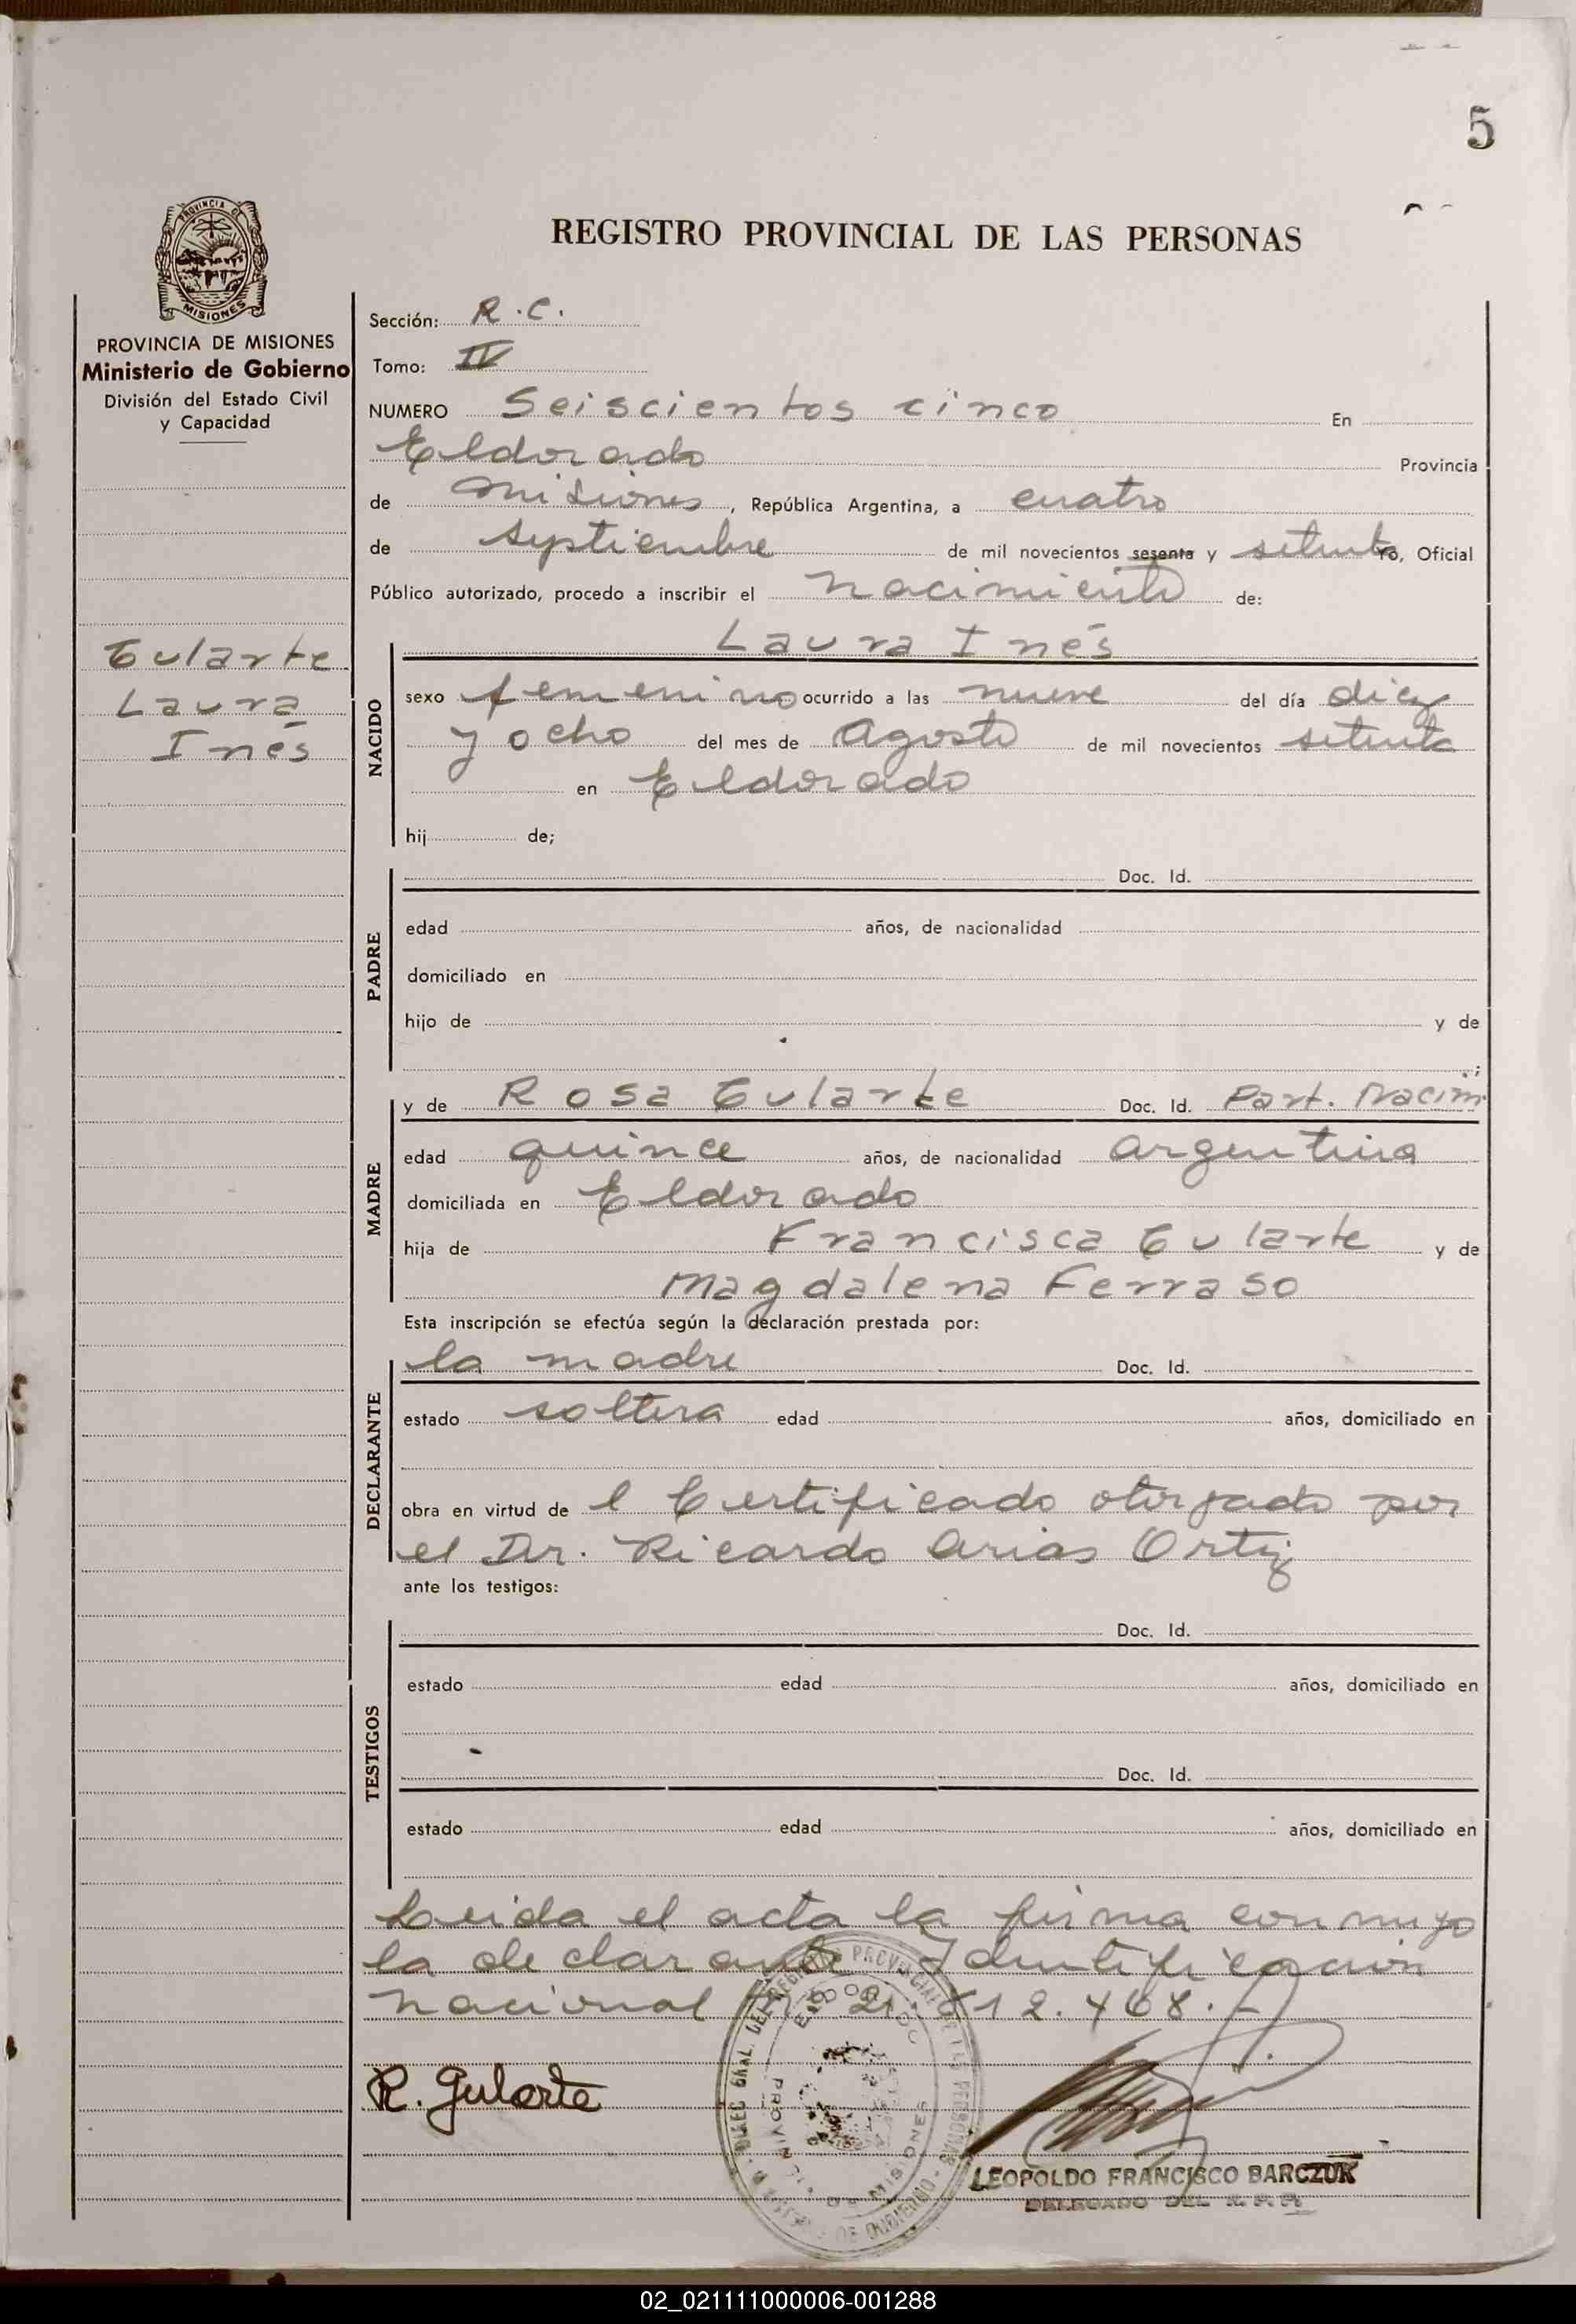 5
REGISTRO PROVINCIAL DE LAS PERSONAS
PROVINCIA DE MISIONES
PROVINCIA DE MISIONES
Ministerio de Gobierno
División del Estado Civil
y Capacidad
Gularte
Laura
Inés
Sección: R.C.
Tomo: IV
NUMERO Seiscientos cinco En
Eldorado Provincia
de Misiones, República Argentina, a cuatro
de septiembre de mil novecientos sesenta y setenta, Oficial
Público autorizado, procedo a inscribir el nacimiento de:
Laura Inés
NACIDO
sexo femenino ocurrido a las nueve del día diez
y ocho del mes de Agosto de mil novecientos setenta
en Eldorado
hij de;
PADRE
Doc. Id.
edad años, de nacionalidad
domiciliado en
hijo de y de
MADRE
y de Rosa Gularte Doc. Id. Part. Nacim
edad quince años, de nacionalidad argentina
domiciliada en Eldorado
hija de Francisca Gularte y de
Magdalena Ferraso
Esta inscripción se efectúa según la declaración prestada por:
DECLARANTE
la madre Doc. Id.
estado soltera edad años, domiciliado en
obra en virtud de l Certificado otorgado por
el Dr. Ricardo Arias Ortiz
ante los testigos:
TESTIGOS
Doc. Id.
estado edad años, domiciliado en
Doc. Id.
estado edad años, domiciliado en
Leida el acta la firma conmigo
la declarante Identificación
nacional Nº 21.612.468.-
R. Gularte
LEOPOLDO FRANCISCO BARCZUK
DELEGADO DEL R.P.P.
02_021111000006-001288